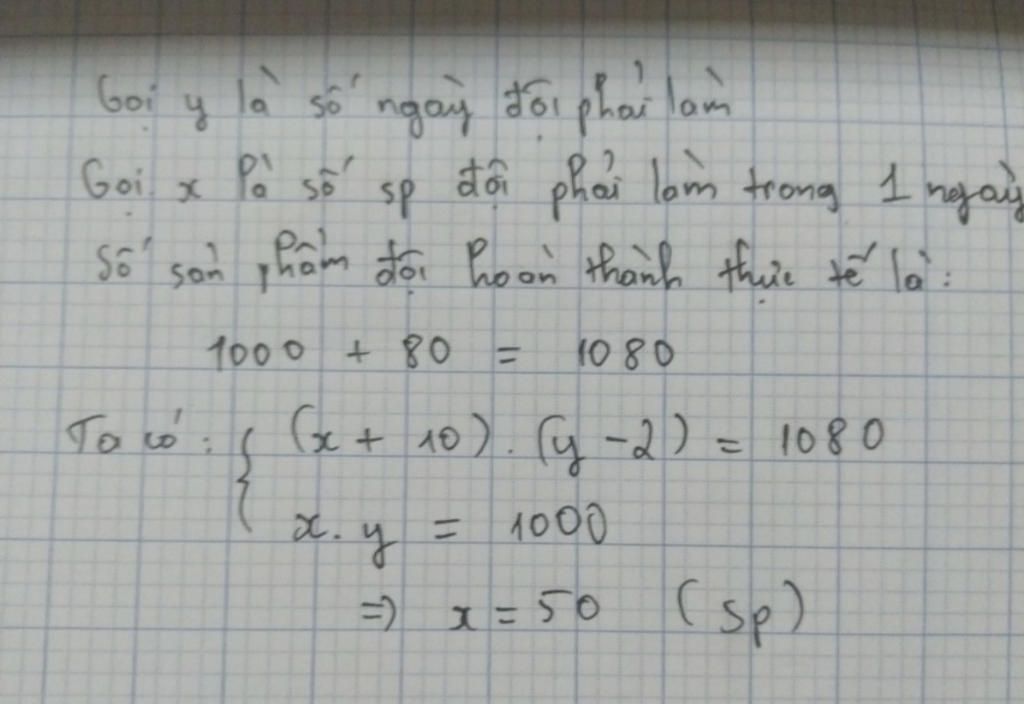 Gọi y là số ngày đội phải làm
Gọi x là số sp đội phải làm trong 1 ngày
Số sản phẩm đội hoàn thành thực tế là:
1000 + 80 = 1080
Ta có: { (x + 10). (y - 2) = 1080
x. y = 1000
=> x = 50 (sp)